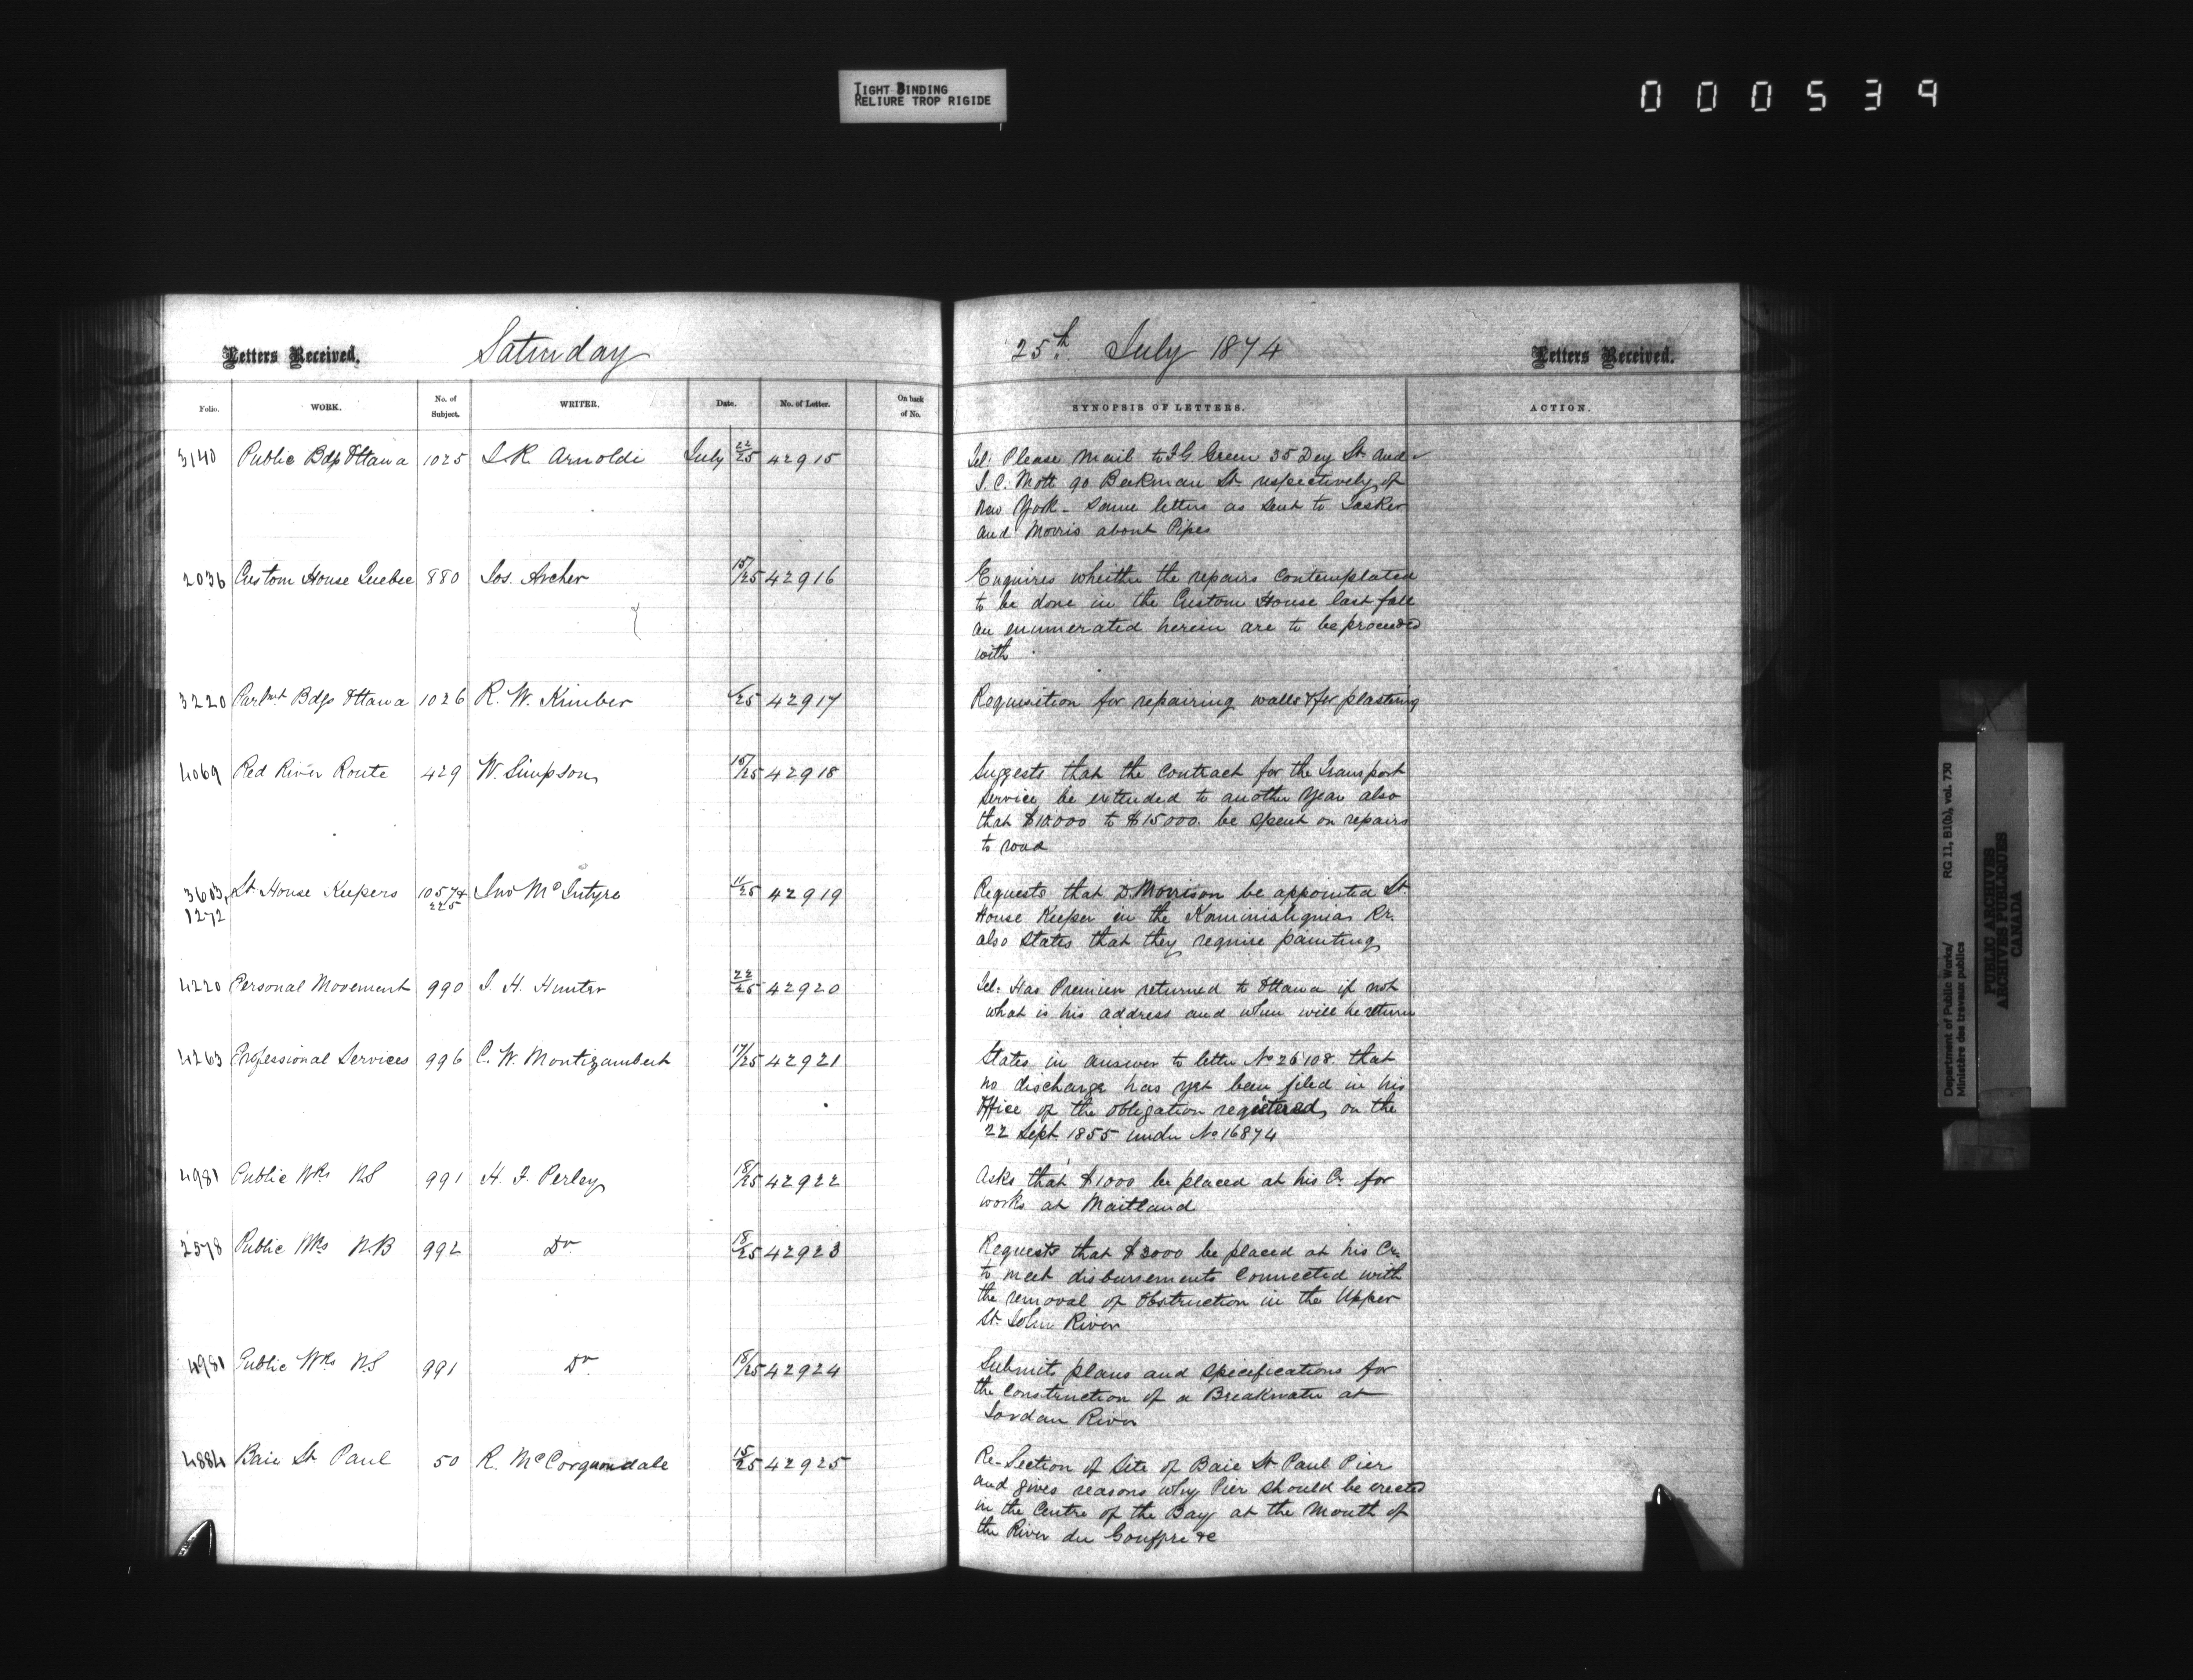 TIGHT BINDING
RELIURE TROP RIGIDE
000539
Letters Received. Saturday 25th July 1874 Letters Received.
Folio. WORK. No. of Subject. WRITER. Date. No. of Letter. On back of No. SYNOPSIS OF LETTERS. ACTION.
3140 Public Bdgs Ottawa 1025 J.R. Arnoldi July 22/25 42915 Tel: Please mail to J G. Green 35 Dey St. and
J. C. Mott 90 Beekman St. respectively of
New York - same letters as sent to Tasker
and Morris about Pipes
2036 Custom House Quebec 880 Jos. Archer 15/25 42916 Enquires wheither the repairs contemplated
to be done in the Custom House last fall
as enumerated herein are to be proceeded
with
3220 Parlmt Bdgs Ottawa 1026 R. W. Kimber /25 42917 Requisition for repairing walls & for plastering
4069 Red River Route 429 W. Simpson 15/25 42918 Suggests that the contract for the Transport
Service be extended to another year also
that $10.000 to $15000. be spent on repairs
to road
3603, Lt. House Keepers 1057 & Jno McIntyre 11/25 42919 Requests that D. Morrison be appointed Lt.
1272 225 House Keeper in the Kaministiquia Rr.
also states that they require painting
4220 Personal Movement 990 J. H. Hunter 22/25 42920 Tel: Has Premier returned to Ottawa if not
what is his address and when will he return
4263 Professional Services 996 C. W. Montizambert 17/25 42921 States in answer to letter No 26108. that
no discharge has yet been filed in his
Office of the obligation registered on the
22 Sept 1855 under No 16874
4981 Public Wks NS 991 H. F. Perley 18/25 42922 Asks that $1000 be placed at his Cr. for
works at Maitland
2578 Public Wks N.B 992 Do 18/25 42923 Requests that $3000 be placed at his Cr.
to meet disbursements connected with
the removal of Obstruction in the Upper
St. John River
4981 Public Wks NS 991 Do 18/25 42924 Submits plans and specifications for
the construction of a Breakwater at
Jordan River
4884 Baie St Paul 50 R. McCorquondale 15/25 42925 Re-Section of Site of Baie St Paul Pier
and gives reasons why Pier should be erected
in the Centre of the Bay at the Mouth of
the River du Gouffre &c
Department of Public Works/
Ministère des travaux publics
RG 11, B1(b), vol. 730
PUBLIC ARCHIVES
ARCHIVES PUBLIQUES
CANADA